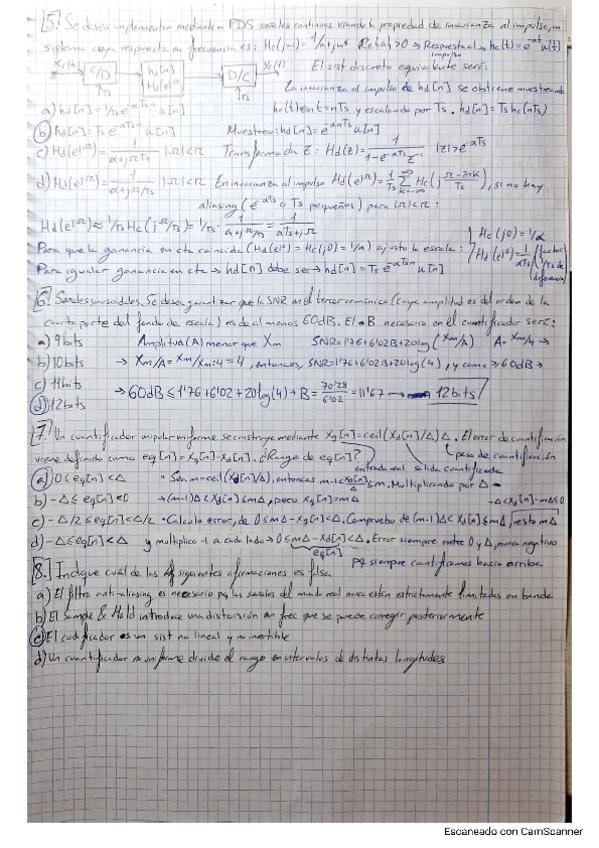 5. Se desea implementar mediante PDS señales continuas usando la propiedad de invarianza al impulso, un
sistema cuya respuesta en frecuencia es: Hc(jω)=1/α+jω Re{α}>0 → Respuesta al impulso → hc(t)=e^-αt u(t)
xc(t) → C/D → hd[n] Hd(e^jΩ) → D/C → yc(t) El sist discreto equivalente será:
↑Ts ↑Ts La invarianza al impulso de hd[n] se obtiene muestreando
a) hd[n]=1/Ts e^-αTsn u[n] hc(t) en t=nTs y escalando por Ts. hd[n]=Ts hc(nTs)
b) hd[n]=Ts e^-αTsn u[n] Muestreo: hd[n]=e^-αnTs u[n]
c) Hd(e^jΩ)=1/α+jΩTs |Ω|<π Transformada Z: Hd(z)=1/1-e^-αTs z^-1 |z|>e^-αTs
d) Hd(e^jΩ)=1/α+jΩ/Ts |Ω|<π En invarianza al impulso Hd(e^jΩ)=1/Ts Σ Hc(j Ω-2πk/Ts), si no hay
aliasing (e^-αTs o Ts pequeños) para |Ω|<π:
Hd(e^jΩ)≈1/Ts Hc(jΩ/Ts)=1/Ts· 1/α+jΩ/Ts = 1/αTs+jΩ
Hc(j0)=1/α
Para que la ganancia en cta coincida (Hd(e^j0)=Hc(j0)=1/α) ajusto la escala: Hd(e^j0)=1/αTs (factor 1/Ts de diferencia)
Para igualar ganancia en cta → hd[n] debe ser → hd[n]=Ts e^-αTsn u[n]
6. Señales sinusoidales. Se desea garantizar que la SNR en el tercer armónico (cuya amplitud es del orden de la
cuarta parte del fondo de escala) es de al menos 60dB. El nºB necesario en el cuantificador será:
a) 9 bits Amplitud (A) menor que Xm SNR=1'76+6'02B+20log(Xm/A) A=Xm/4 →
b) 10 bits → Xm/A=Xm/Xm:4=4, entonces, SNR=1'76+6'02B+20log(4), y como ≥60dB →
c) 11 bits → 60dB≤1'76+6'02+20log(4)→B=70'28/6'02=11'67 → 12 bits
d) 12 bits
7. Un cuantificador unipolar uniforme se construye mediante xq[n]=ceil(xd[n]/Δ)Δ. El error de cuantificación
viene definido como eq[n]=xq[n]-xd[n]. ¿Rango de eq[n]? paso de cuantificación
entrada real salida cuantificada
a) 0≤eq[n]<Δ • Sea m=ceil(xd[n]/Δ), entonces m-1<xd[n]/Δ≤m. Multiplicando por Δ →
b) -Δ≤eq[n]<0 →(m-1)Δ<xd[n]≤mΔ, pero xq[n]=mΔ -Δ<xd[n]-mΔ≤0
c) -Δ/2≤eq[n]<Δ/2 • Calculo error, de 0≤mΔ-xq[n]<Δ. Compruebo de (m-1)Δ<xd[n]≤mΔ, resto mΔ
d) -Δ≤eq[n]<Δ y multiplico -1 a cada lado → 0≤mΔ-xd[n]<Δ. Error siempre entre 0 y Δ, nunca negativo
eq[n] pq siempre cuantificamos hacia arriba
8. Indique cuál de las siguientes afirmaciones es falsa
a) El filtro anti-aliasing es necesario pq las señales del mundo real nunca están estrictamente limitadas en banda
b) El Sample & Hold introduce una distorsión en frec que se puede corregir posteriormente
c) El codificador es un sist no lineal y no invertible
d) Un cuantificador no uniforme divide el rango en intervalos de distintas longitudes
Escaneado con CamScanner